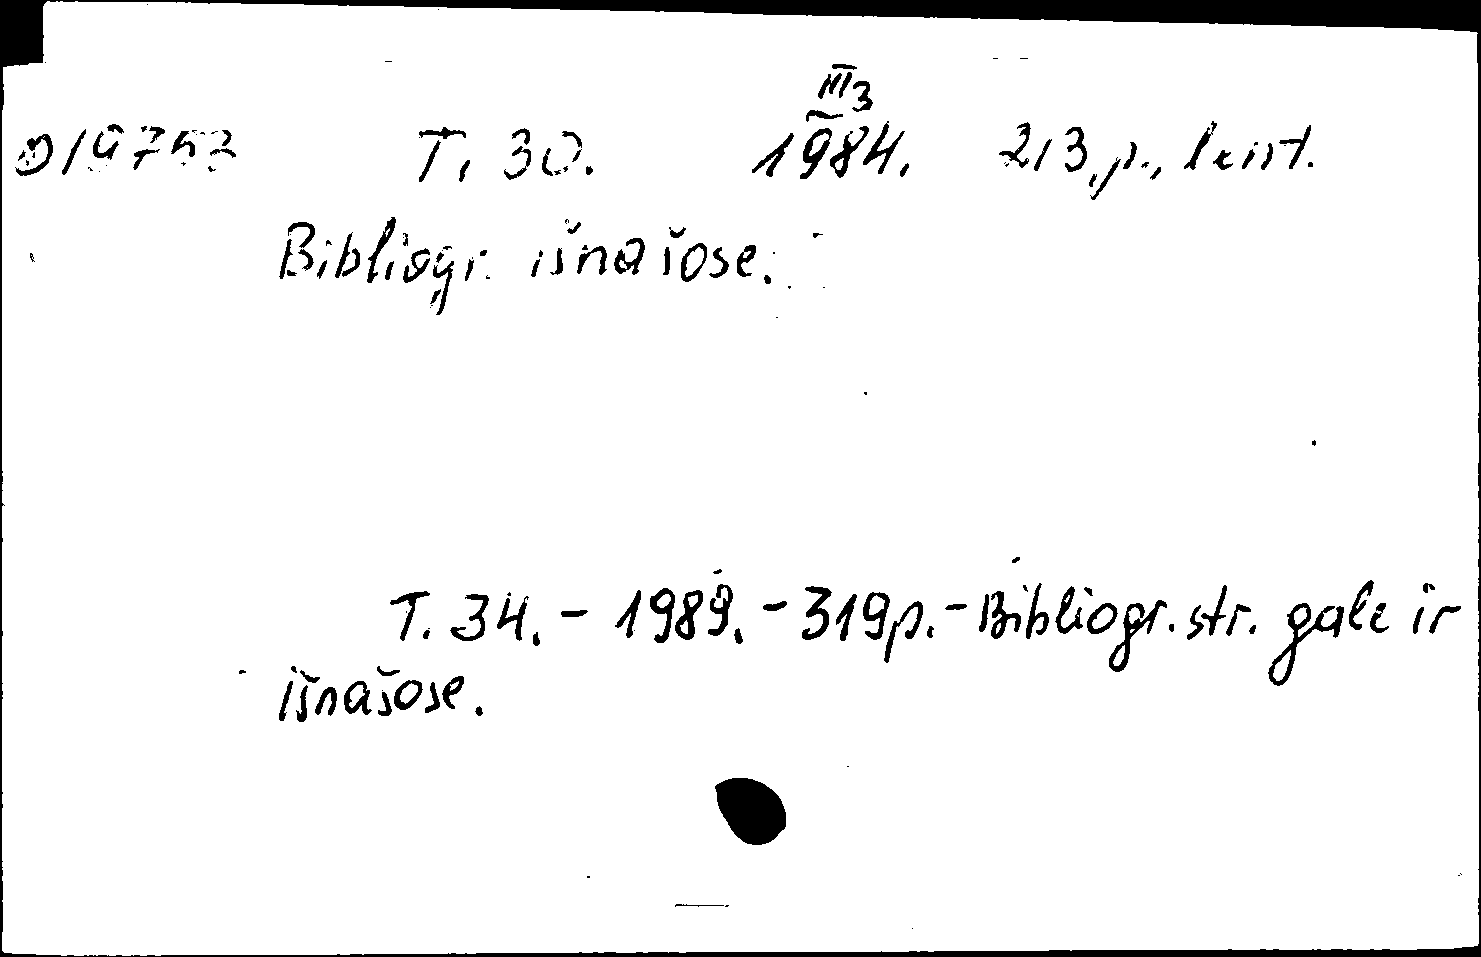 III3
019753 T. 30. 1984. 213 p., lent.
Bibliogr. išnašose.
T. 34. - 1989. - 319 p. - Bibliogr. str. gale ir
išnašose.